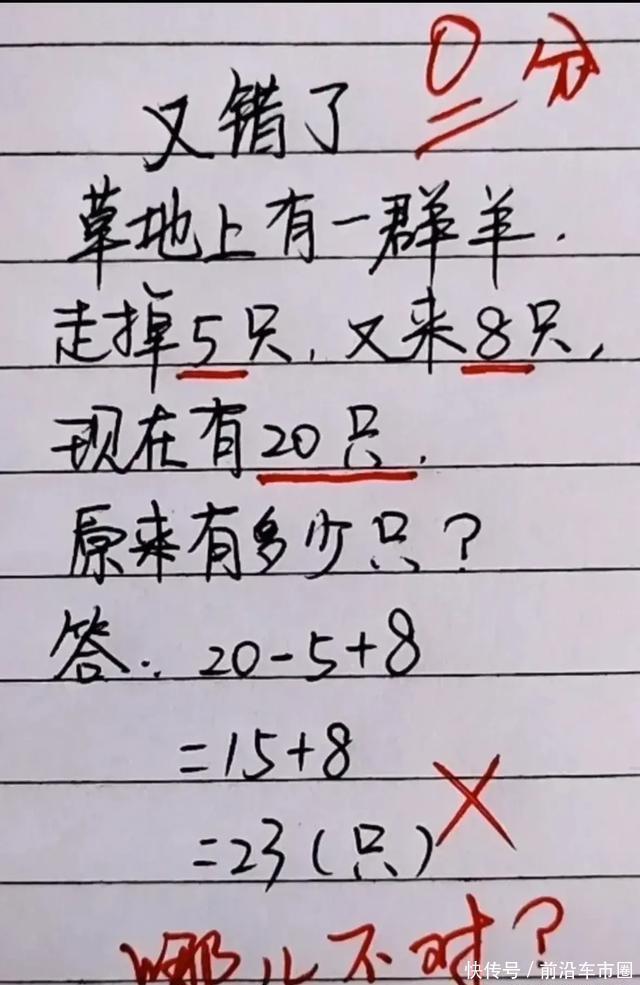 0分
又错了
草地上有一群羊.
走掉5只,又来8只,
现在有20只.
原来有多少只?
答:20-5+8
=15+8
=23(只)
哪儿不对?
快传号/前沿车市圈